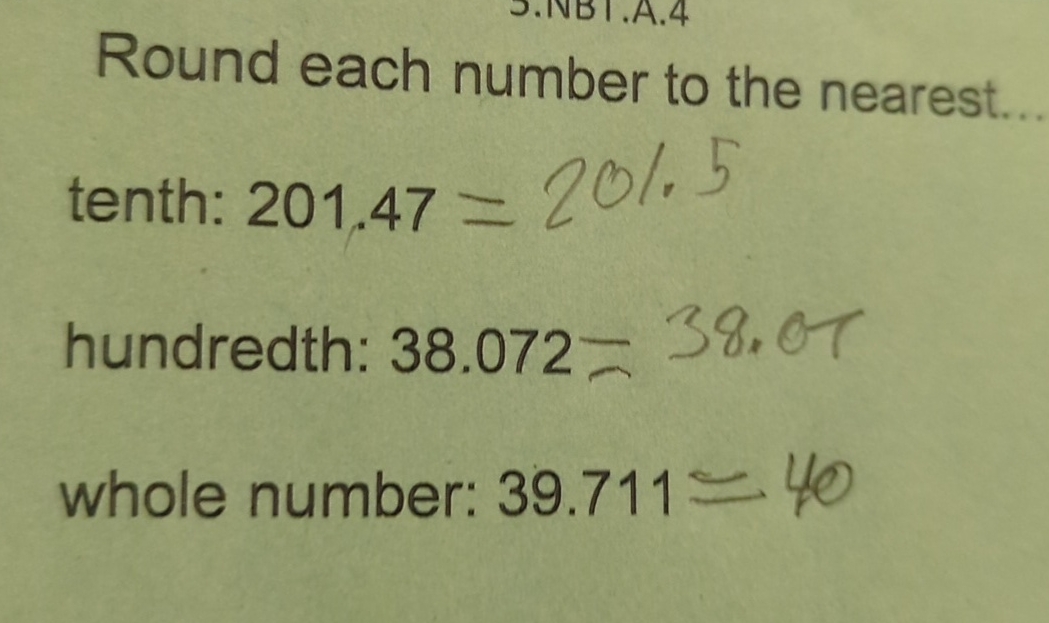 5.NBT.A.4
Round each number to the nearest...
tenth: 201.47 = 201.5
hundredth: 38.072 = 38.07
whole number: 39.711 = 40